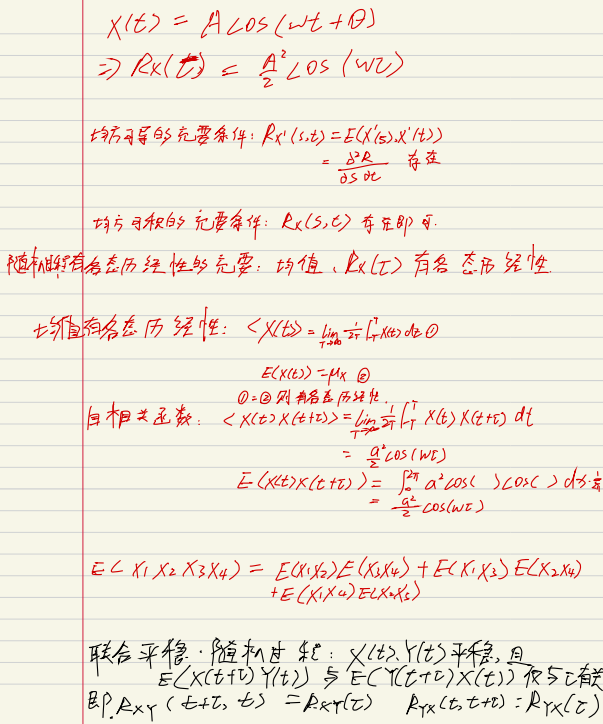 X(t) = A cos(wt+θ)
⇒ Rx(τ) = A²/2 cos(wτ)
均方可导的充要条件: Rx'(s,t) = E(X'(s),X'(t))
= ∂²R/∂s∂t 存在
均方可积的充要条件: Rx(s,t) 存在即可.
随机过程有各态历经性的充要: 均值、Rx(τ) 有各态历经性.
均值有各态历经性: <X(t)> = lim T→∞ 1/2T ∫_{-T}^{T} X(t) dt ①
E(X(t)) = μx ②
①=② 则有各态历经性.
自相关函数: <X(t)X(t+τ)> = lim T→∞ 1/2T ∫_{-T}^{T} X(t) X(t+τ) dt
= a²/2 cos(wτ)
E(X(t)X(t+τ)) = ∫_0^{2π} a² cos( ) cos( ) dx·1/2π
= a²/2 cos(wτ)
E( X1 X2 X3 X4) = E(X1X2)E(X3X4) + E(X1X3) E(X2X4)
+ E(X1X4) E(X2X3)
联合平稳·随机过程: X(t)、Y(t)平稳,且
E(X(t+τ)Y(t)) 与 E(Y(t+τ)X(t)) 仅与τ有关
即. RXY (t+τ, t) = RXY(τ) RYX(t,t+τ) = RYX(τ)